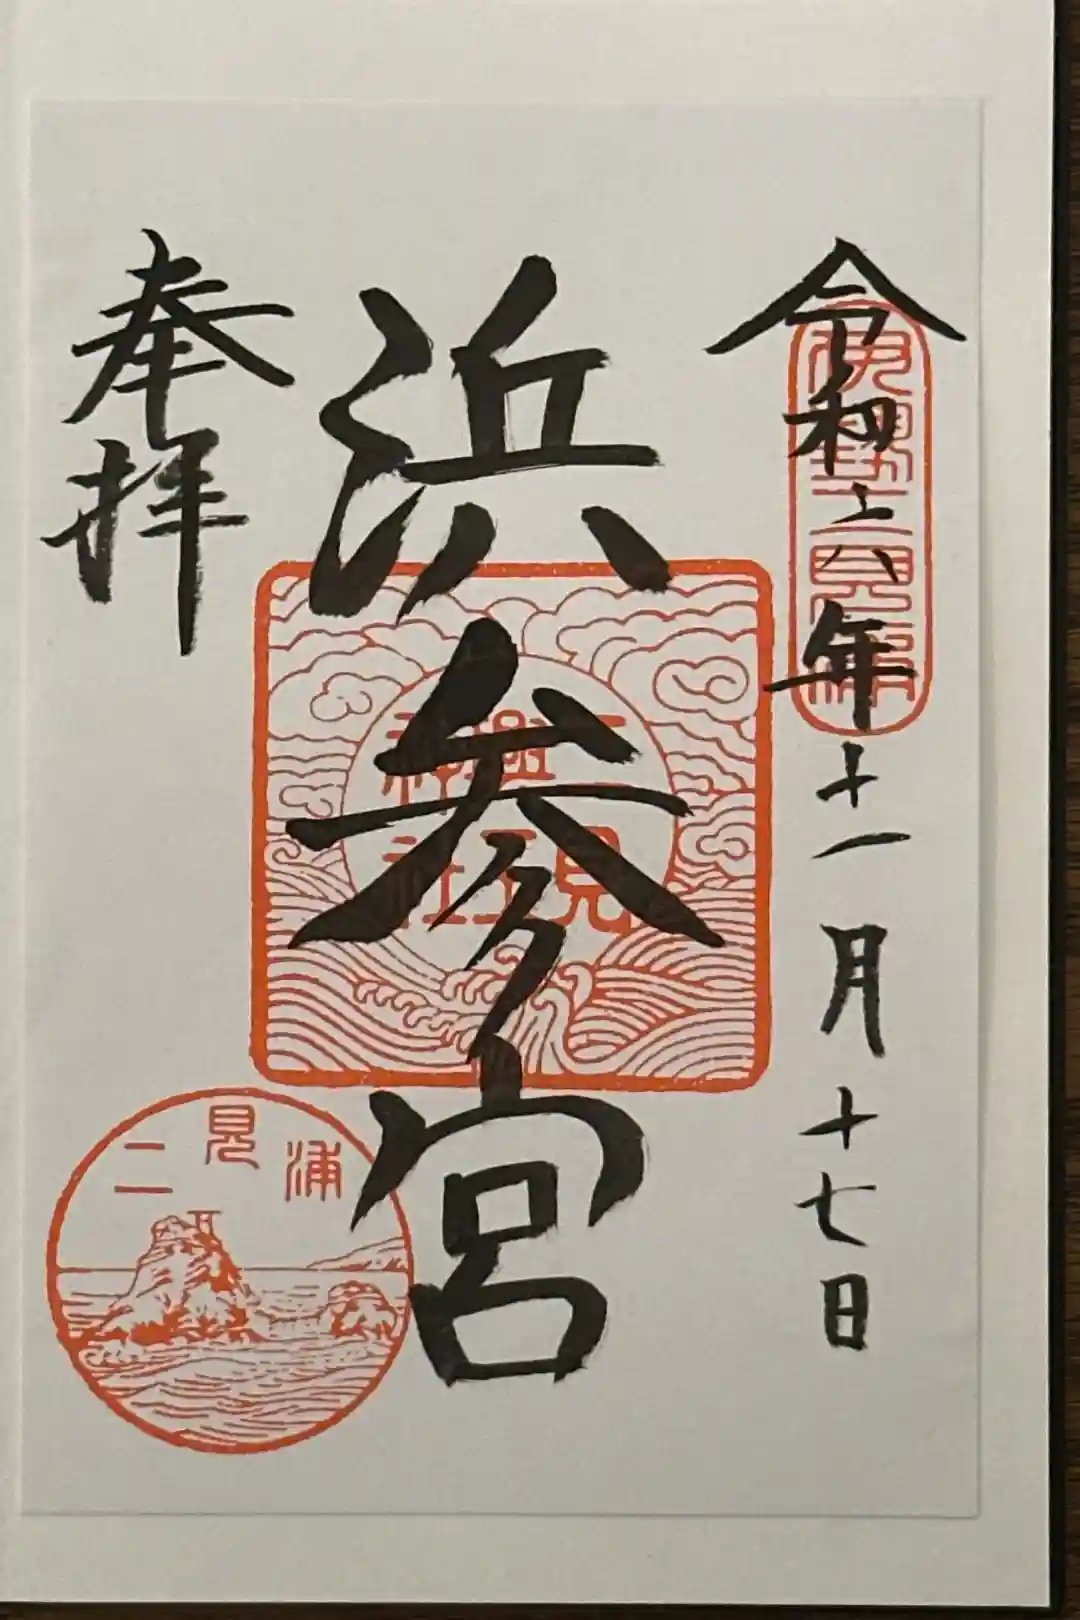 令和六年十一月十七日
伊勢二見浦
浜参宮
二見興玉神社
奉拝
二見浦